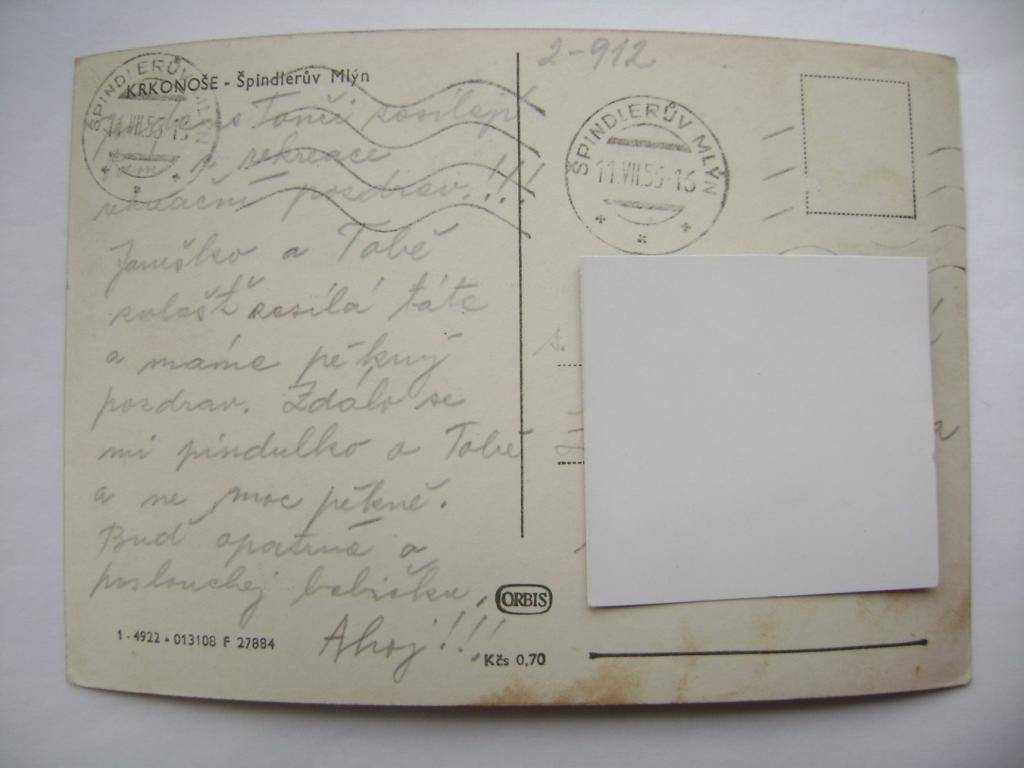 2-912
KRKONOŠE - Špindlerův Mlýn
ŠPINDLERŮV MLÝN
ŠPINDLERŮV MLÝN
11.VII.55-16
s Tonči
rekreace
rekreační pozdrav!!!
a Tobě
zvlášť zasílá táta
a máma pěkný
pozdrav. Zdálo se
mi pindulko o Tobě
a ne moc pěkně.
Buď opatrná a
poslouchej babičku.
Ahoj!!!
ORBIS
1 - 4922 • 013108 F 27884
Kčs 0,70